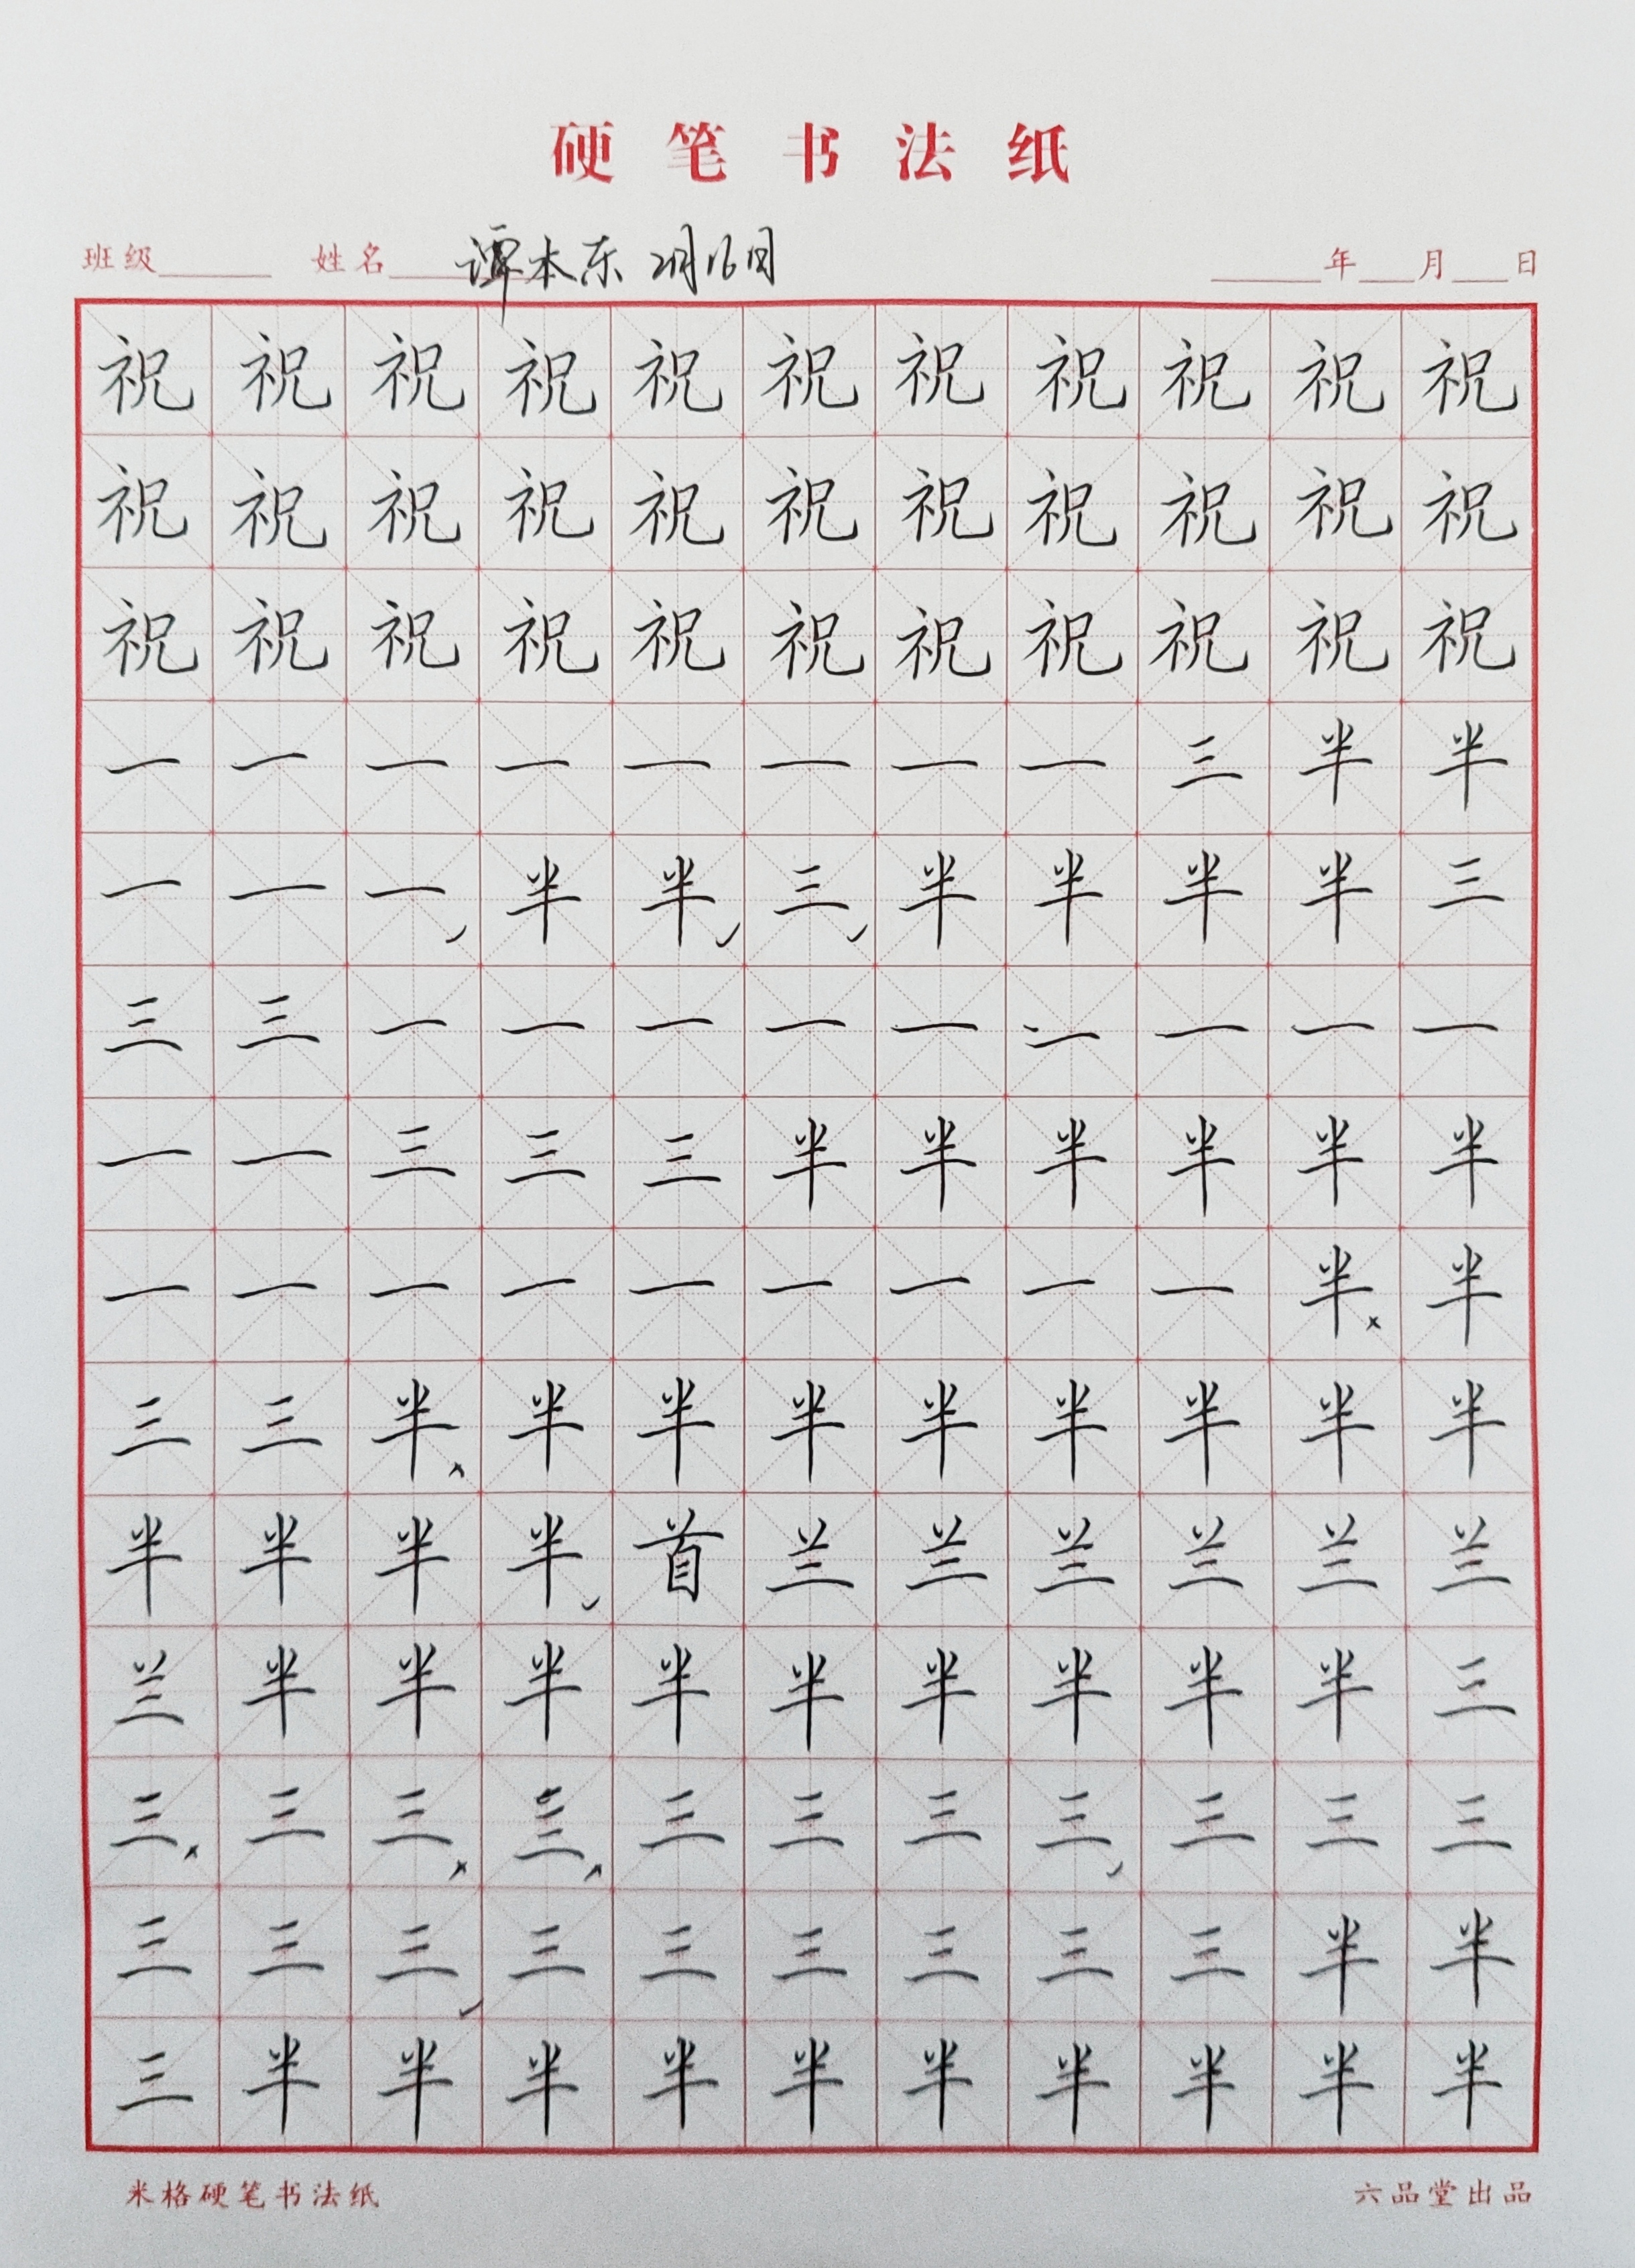 硬笔书法纸
班级 姓名 谭本东 2月16日 年 月 日
祝祝祝祝祝祝祝祝祝祝祝
祝祝祝祝祝祝祝祝祝祝祝
祝祝祝祝祝祝祝祝祝祝祝
一一一一一一一一三半半
一一一半半三半半半半三
三三一一一一一二一一一
一一三三三半半半半半半
一一一一一一一一一半半
三三半半半半半半半半半
半半半半首兰兰兰兰兰兰
兰半半半半半半半半半三
三三三三三三三三三三三
三三三三三三三三三半半
三半半半半半半半半半半
米格硬笔书法纸 六品堂出品